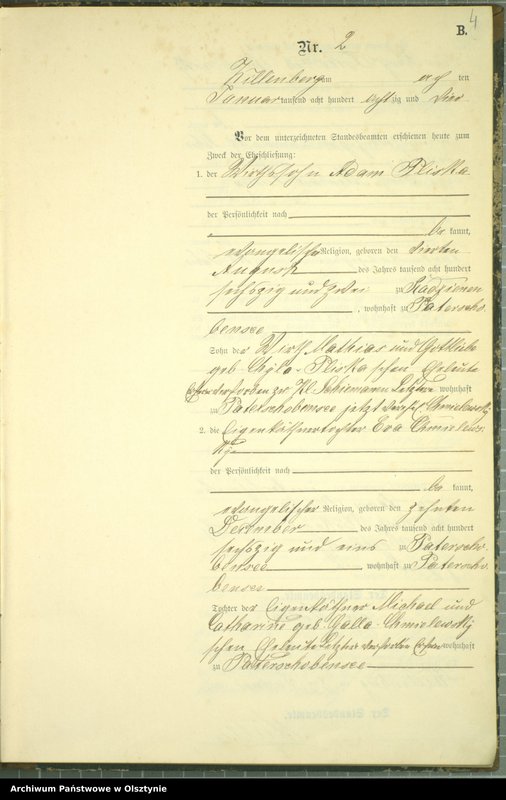 B.
4
Nr. 2
Killenberg am ten
Januar tausend acht hundert achtzig und vier
Vor dem unterzeichneten Standesbeamten erschienen heute zum
Zweck der Eheschließung:
1. der Wirthssohn Adam Pliska
der Persönlichkeit nach
be kannt,
evangelischer Religion, geboren den vierten
August des Jahres tausend acht hundert
sechszig und zwei zu Radzienen
, wohnhaft zu Paterscho
bensee
Sohn des Wirth Mathias und Gottliebe
geb. Pliska schen Eheleute
verstorben zu Kl. Schiemanen Letztere wohnhaft
zu Paterschobensee jetzt
2. die Eigenkäthnertochter Eva Chmielews-
kij
der Persönlichkeit nach
be kannt,
evangelischer Religion, geboren den zehnten
Dezember des Jahres tausend acht hundert
sechszig und eins zu Paterscho-
bensee , wohnhaft zu Paterscho
bensee
Tochter des Eigenkäthner Michael und
Catharine geb. Galla - Chmielewskij
schen Eheleute Letzter verstorben wohnhaft
zu Paterschobensee
Archiwum Państwowe w Olsztynie